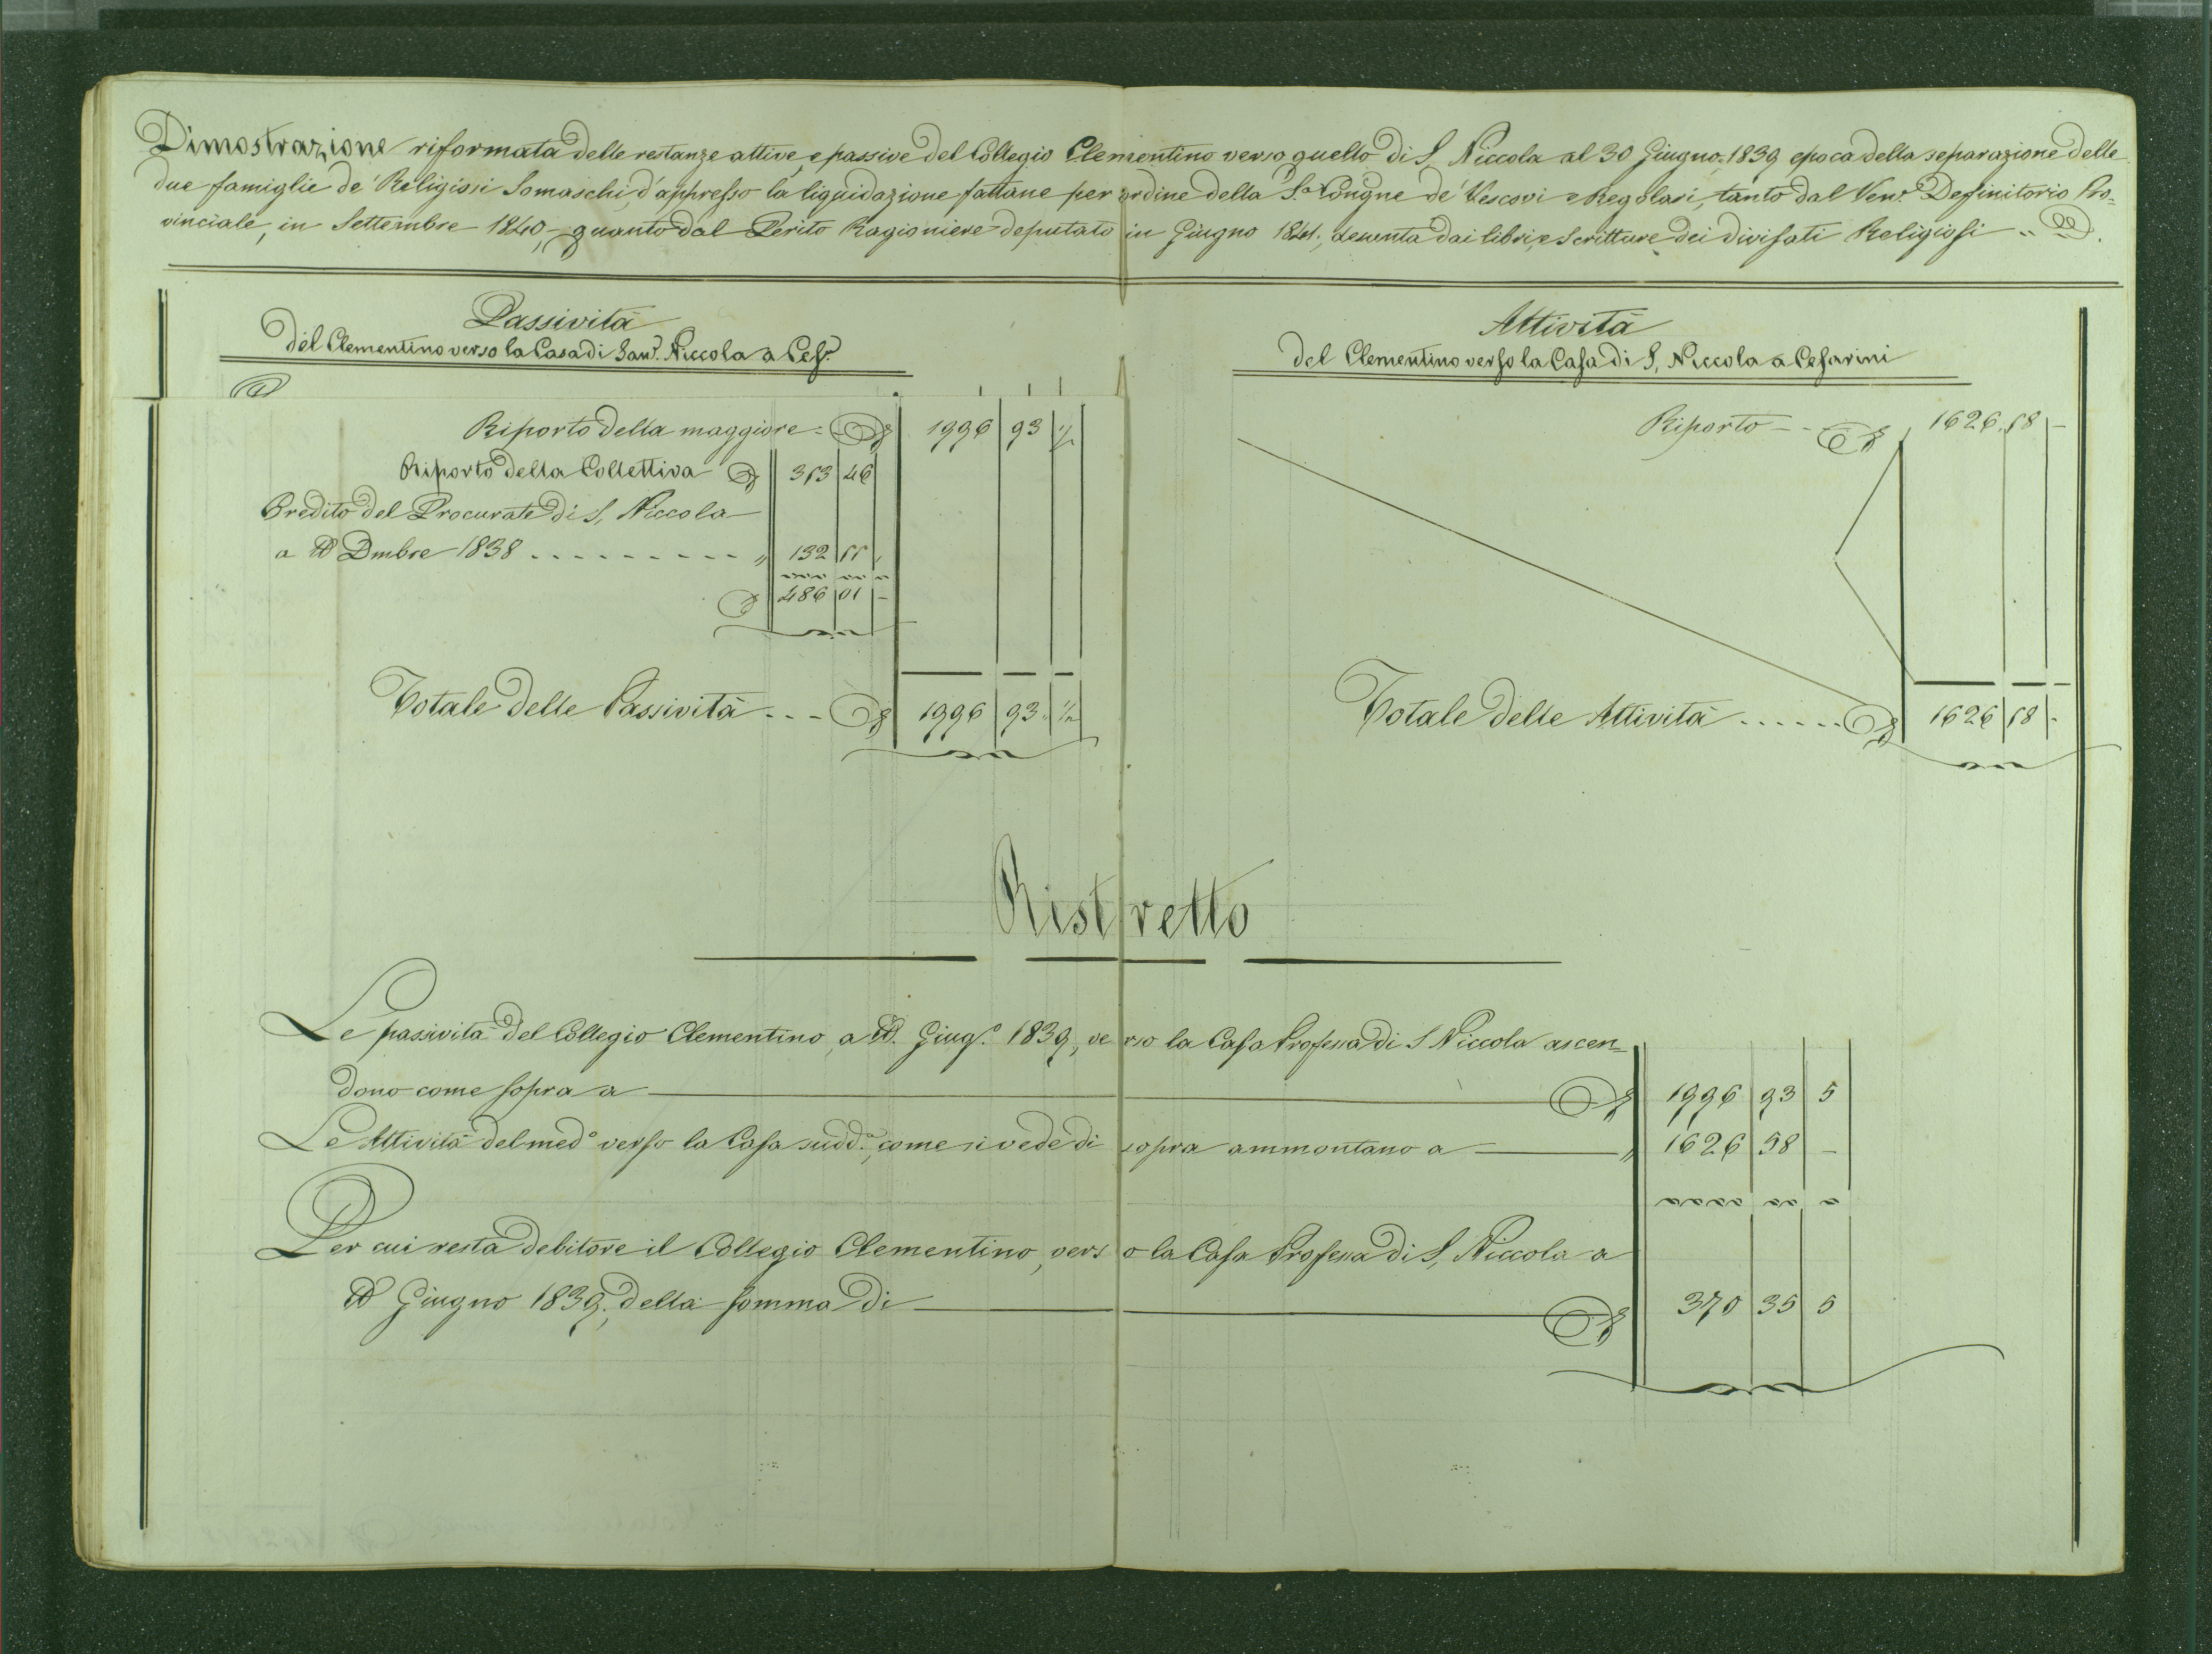 Dimostrazione riformata delle restanze attive, e passive del Collegio Clementino verso quello di S. Niccola al 30 Giugno 1839 epoca della separazione delle
due famiglie de' Religiosi Somaschi, d'appresso la liquidazione fattane per ordine della S.a Congne de' Vescovi e Regolari, tanto dal Ven.e Definitorio Pro=
vinciale, in Settembre 1840, quanto dal Perito Ragioniere deputato in Giugno 1841, desunta dai libri, e Scritture dei divisati Religiosi
Passività
del Clementino verso la Casa di San. Niccola a Ces.
Riporto della maggiore 1996 93 ½
Riporto della Collettiva 353 46
Credito del Procurate di S. Niccola
a tt Dmbre 1838 . . . . . . . . . " 132 55
486 01 –
Totale delle Passività . . . 1996 93 ½
Attività
del Clementino verso la Casa di S. Niccola a Cesarini
Riporto 1626 58 –
Totale delle Attività . . . . . . 1626 58 -
Ristretto
Le passività del Collegio Clementino, a tt. Giug.o 1839, verso la Casa Professa di S Niccola ascen=
dono come sopra a 1996 93 5
Le Attività del med.o verso la Casa sudd.a, come si vede di sopra ammontano a " 1626 58 –
Per cui resta debitore il Collegio Clementino, verso la Casa Professa di S. Niccola a
tt Giugno 1839, della somma di 370 35 5